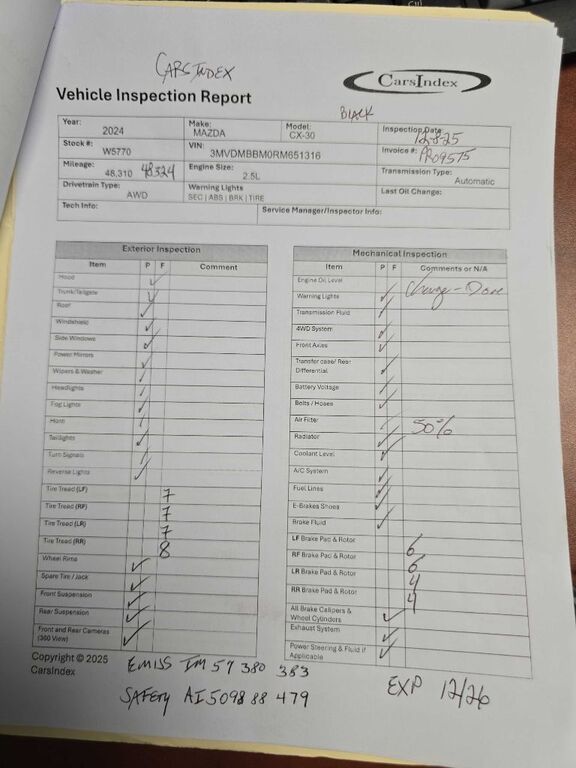 CARSINDEX
CarsIndex
Vehicle Inspection Report
BLACK
Year: 2024 Make: MAZDA Model: CX-30 Inspection Date: 12-8-25
Stock #: W5770 VIN: 3MVDMBBM0RM651316 Invoice #: PRO9575
Mileage: 48,310 48324 Engine Size: 2.5L Transmission Type: Automatic
Drivetrain Type: AWD Warning Lights SEC | ABS | BRK | TIRE Last Oil Change:
Tech Info: Service Manager/Inspector Info:
Exterior Inspection
Item P F Comment
Hood ✓
Trunk/Tailgate ✓
Roof ✓
Windshield ✓
Side Windows ✓
Power Mirrors ✓
Wipers & Washer ✓
Headlights ✓
Fog Lights ✓
Horn ✓
Taillights ✓
Turn Signals ✓
Reverse Lights ✓
Tire Tread (LF) 7
Tire Tread (RF) 7
Tire Tread (LR) 7
Tire Tread (RR) 8
Wheel Rims ✓
Spare Tire / Jack ✓
Front Suspension ✓
Rear Suspension ✓
Front and Rear Cameras
(360 View) ✓
Mechanical Inspection
Item P F Comments or N/A
Engine Oil Level Change - Done
Warning Lights ✓
Transmission Fluid ✓
4WD System ✓
Front Axles ✓
Transfer case/ Rear
Differential ✓
Battery Voltage ✓
Belts / Hoses ✓
Air Filter ✓ 50%
Radiator ✓
Coolant Level ✓
A/C System ✓
Fuel Lines ✓
E-Brakes Shoes ✓
Brake Fluid ✓
LF Brake Pad & Rotor 6
RF Brake Pad & Rotor 6
LR Brake Pad & Rotor 4
RR Brake Pad & Rotor 4
All Brake Calipers &
Wheel Cylinders ✓
Exhaust System ✓
Power Steering & Fluid if
Applicable ✓
Copyright © 2025
CarsIndex
EMISS IM 57 380 383
SAFETY AI5098 88 479
EXP 12/26